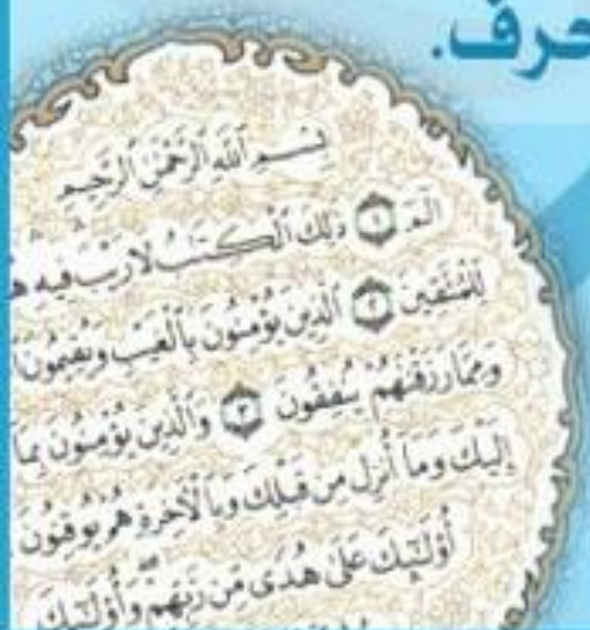 حرف.
بِسْمِ ٱللَّهِ ٱلرَّحْمَٰنِ ٱلرَّحِيمِ
الٓمٓ ١ ذَٰلِكَ ٱلْكِتَٰبُ لَا رَيْبَ فِيهِ
لِّلْمُتَّقِينَ ٢ ٱلَّذِينَ يُؤْمِنُونَ بِٱلْغَيْبِ وَيُقِيمُونَ
وَمِمَّا رَزَقْنَٰهُمْ يُنفِقُونَ ٣ وَٱلَّذِينَ يُؤْمِنُونَ بِمَا
إِلَيْكَ وَمَآ أُنزِلَ مِن قَبْلِكَ وَبِٱلْءَاخِرَةِ هُمْ يُوقِنُونَ
أُو۟لَٰٓئِكَ عَلَىٰ هُدًى مِّن رَّبِّهِمْ وَأُو۟لَٰٓئِكَ